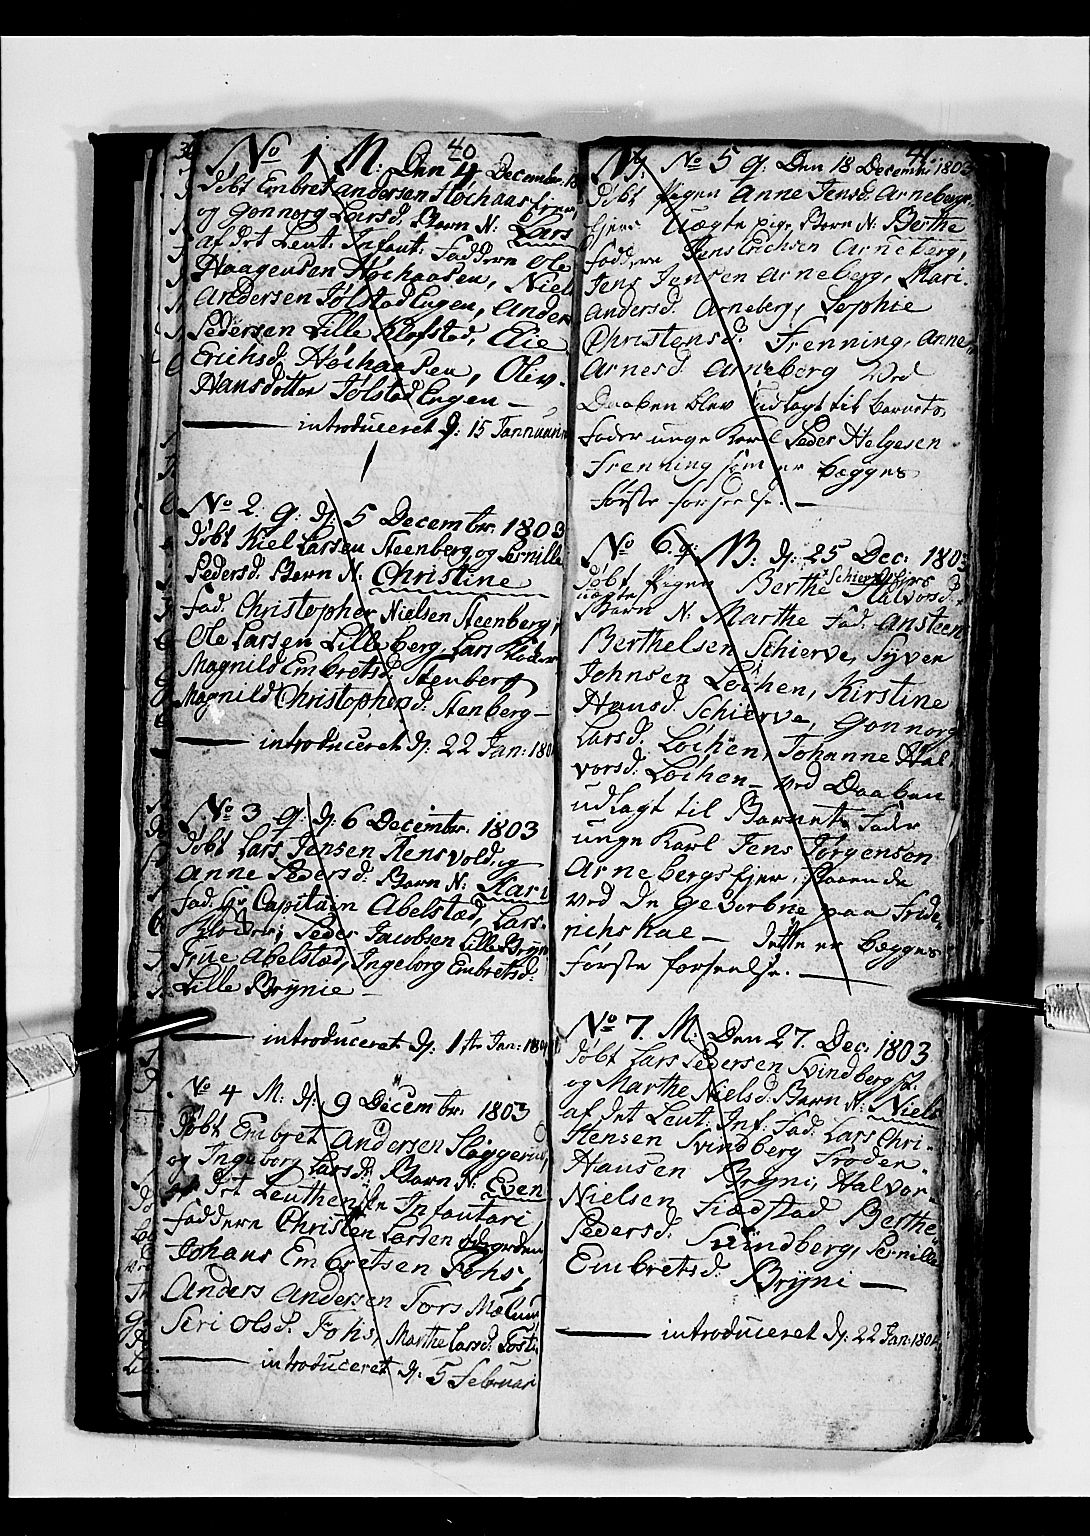 40
No 1 M. Den 4 December
døbt Embret Andersen Høchaas Eyen
og Gonnorg Larsd. Barn N: Lars
af det Leut. Infant. Faddere Ole
Haagensen Høchaasen, Niel
Andersen Jølstad Eugen, Ander
Pedersen Lille Kløfstad, Elie
Erichsd. Høchaasen, Oliv-
Hansdotter Jolstad Eugen —
— introduceret d: 15 Jannuari
No 2. g. d: 5 December 1803
døbt Kiel Larsen Steenberg og Pernille
Pedersd. Barn N: Christine
Fad. Christopher Nielsen Steenberg,
Ole Larsen Lilleberg, Lars
Magnild Embretsd. Stenberg
Magnild Christophersd. Stenberg —
— introduceret d: 22 Jan: 180
No 3 g. d: 6 December 1803
døbt Lars Jensen Rensvold, og
Anne Pedersd. Barn N: Kari
Fad. Hr Capitain Abelstæd, Lars
Peder Jacobsen Lille Bryn
Frue Abelstæd, Ingeborg Embretsd.
Lille Brÿnie —
— introduceret d: 1ste Jan: 180
No 4 M: d: 9 December 1803
døbt Embret Andersen
og Ingeborg Larsd. Barn N: Even
det Leuthenske Infantari,
Faddere Christen Larsen
Johans Embretsen Fohs,
Anders Andersen Tors Mælum
Siri Olsd. Fohs, Marthe Larsd.
— introduceret d: 5 Februari
41
No 5 g. Den 18 Decemb. 1803
Døbt Pigen Anne Jensd. Arnebergs
Ejers Uægte pige Barn N: Berthe
Faddere Jens Erichsen Arneberg,
Jens Jensen Arneberg, Mari
Andersd. Arneberg, Sophie
Christensd. Frenning, Anne
Arnesd. Arneberg Ved
Daaben blev udlagt til barnets
Fader unge Karl Peder Helgesen
Frenning som er begges
første forseelse. —
No 6. g. d: 25 Dec: 1803
døbt Pigen Berthe Halvorsd.
uægte Barn N: Marthe Fad. Ansteen
Berthelsen Schierve, Syver
Johnsen Løchen, Kirstine
Hansd. Schierve, Gonnorg
Larsd. Løchen, Johanne Hal-
vorsd. Løchen — ved Daaben
udlagt til Barnets Fader
unge Karl Jens Jørgensen
Arnebergs Ejer, staaende
ved de Gevorbne paa Fride-
richs Kae — dette er begges
første forseelse. —
No 7. M. Den 27. Dec. 1803
døbt Lars Pedersen Svindberg
og Marthe Nielsd. Barn N: Niels
af det Leut. Inf: Fad. Lars Chri-
stensen Svindberg Troder
Hansen Brÿni, Halvor
Nielsen Berthe
Pedersd. Svindberg, Pernille
Embretsd. Brÿni —
— introduceret d: 22 Jan: 1804